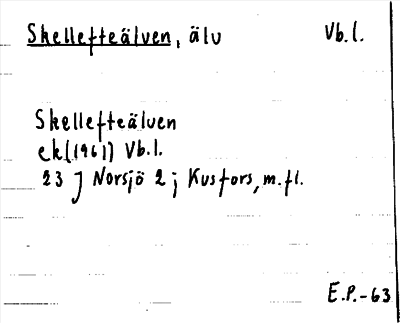 Skellefteälven, älv Vb.l.
Skellefteälven
ek(1961) Vb.l.
23 J Norsjö 2 j Kusfors, m.fl.
E.P.-63